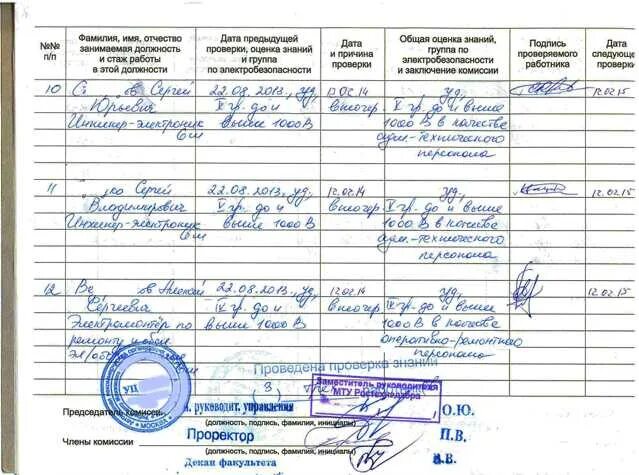 №№ п/п
Фамилия, имя, отчество занимаемая должность и стаж работы в этой должности
Дата предыдущей проверки, оценка знаний и группа по электробезопасности
Дата и причина проверки
Общая оценка знаний, группа по электробезопасности и заключение комиссии
Подпись проверяемого работника
Дата следующе проверки
10 С ов Сергей 22.08.2013., уд, 12.02.14 уд, 12.02.15
Юрьевич V гр. до и внеочер. V гр. до и выше
Инженер-электроник выше 1000 В 1000 В в качестве
адм.-технического
персонала
11 ко Сергей 22.08.2013, уд, 12.02.14 уд, 12.02.15
Владимирович V гр. до и внеочер. V гр. до и выше
Инженер-электроник выше 1000 В 1000 В в качестве
адм.-технического
персонала
12 Ве ов Алексей 22.08.2013., уд, 12.02.14 уд, 12.02.15
Сергеевич IV гр. до и внеочер. IV гр. до и выше
Электромонтёр по выше 1000 В 1000 В в качестве
ремонту оперативно-ремонтного
персонала
Проведена проверка знаний
(3)
УЦ
МОСКВА
Заместитель руководителя
МТУ Ростехнадзора
Председатель комиссии руководит. управления О.Ю.
(должность, подпись, фамилия, инициалы)
Члены комиссии Проректор П.В.
(должность, подпись, фамилия, инициалы)
Декан факультета В.В.